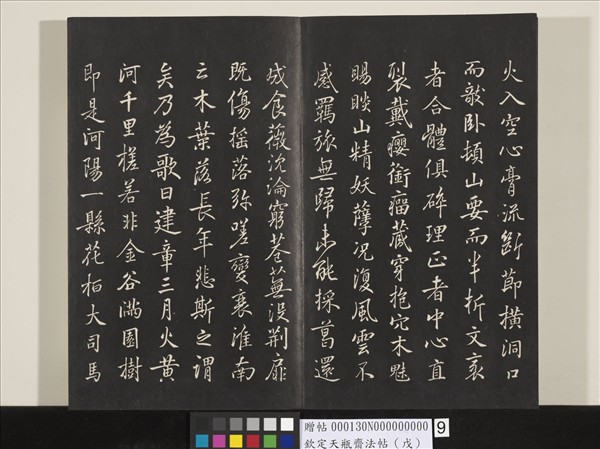 火入空心膏流斷節橫洞口
而敧臥頓山要而半折文衺
者合體俱碎理正者中心直
裂戴癭銜瘤藏穿抱穴木魅
睗睒山精妖孽况復風雲不
感羈旅無歸未能採葛還
成食薇沈淪窮巷蕪没荊扉
既傷搖落弥嗟變衰淮南
云木葉落長年悲斯之謂
矣乃為歌曰建章三月火黃
河千里槎若非金谷滿園樹
即是河陽一縣花桓大司馬
贈帖 000130N000000000
欽定天瓶齋法帖（戊）
9